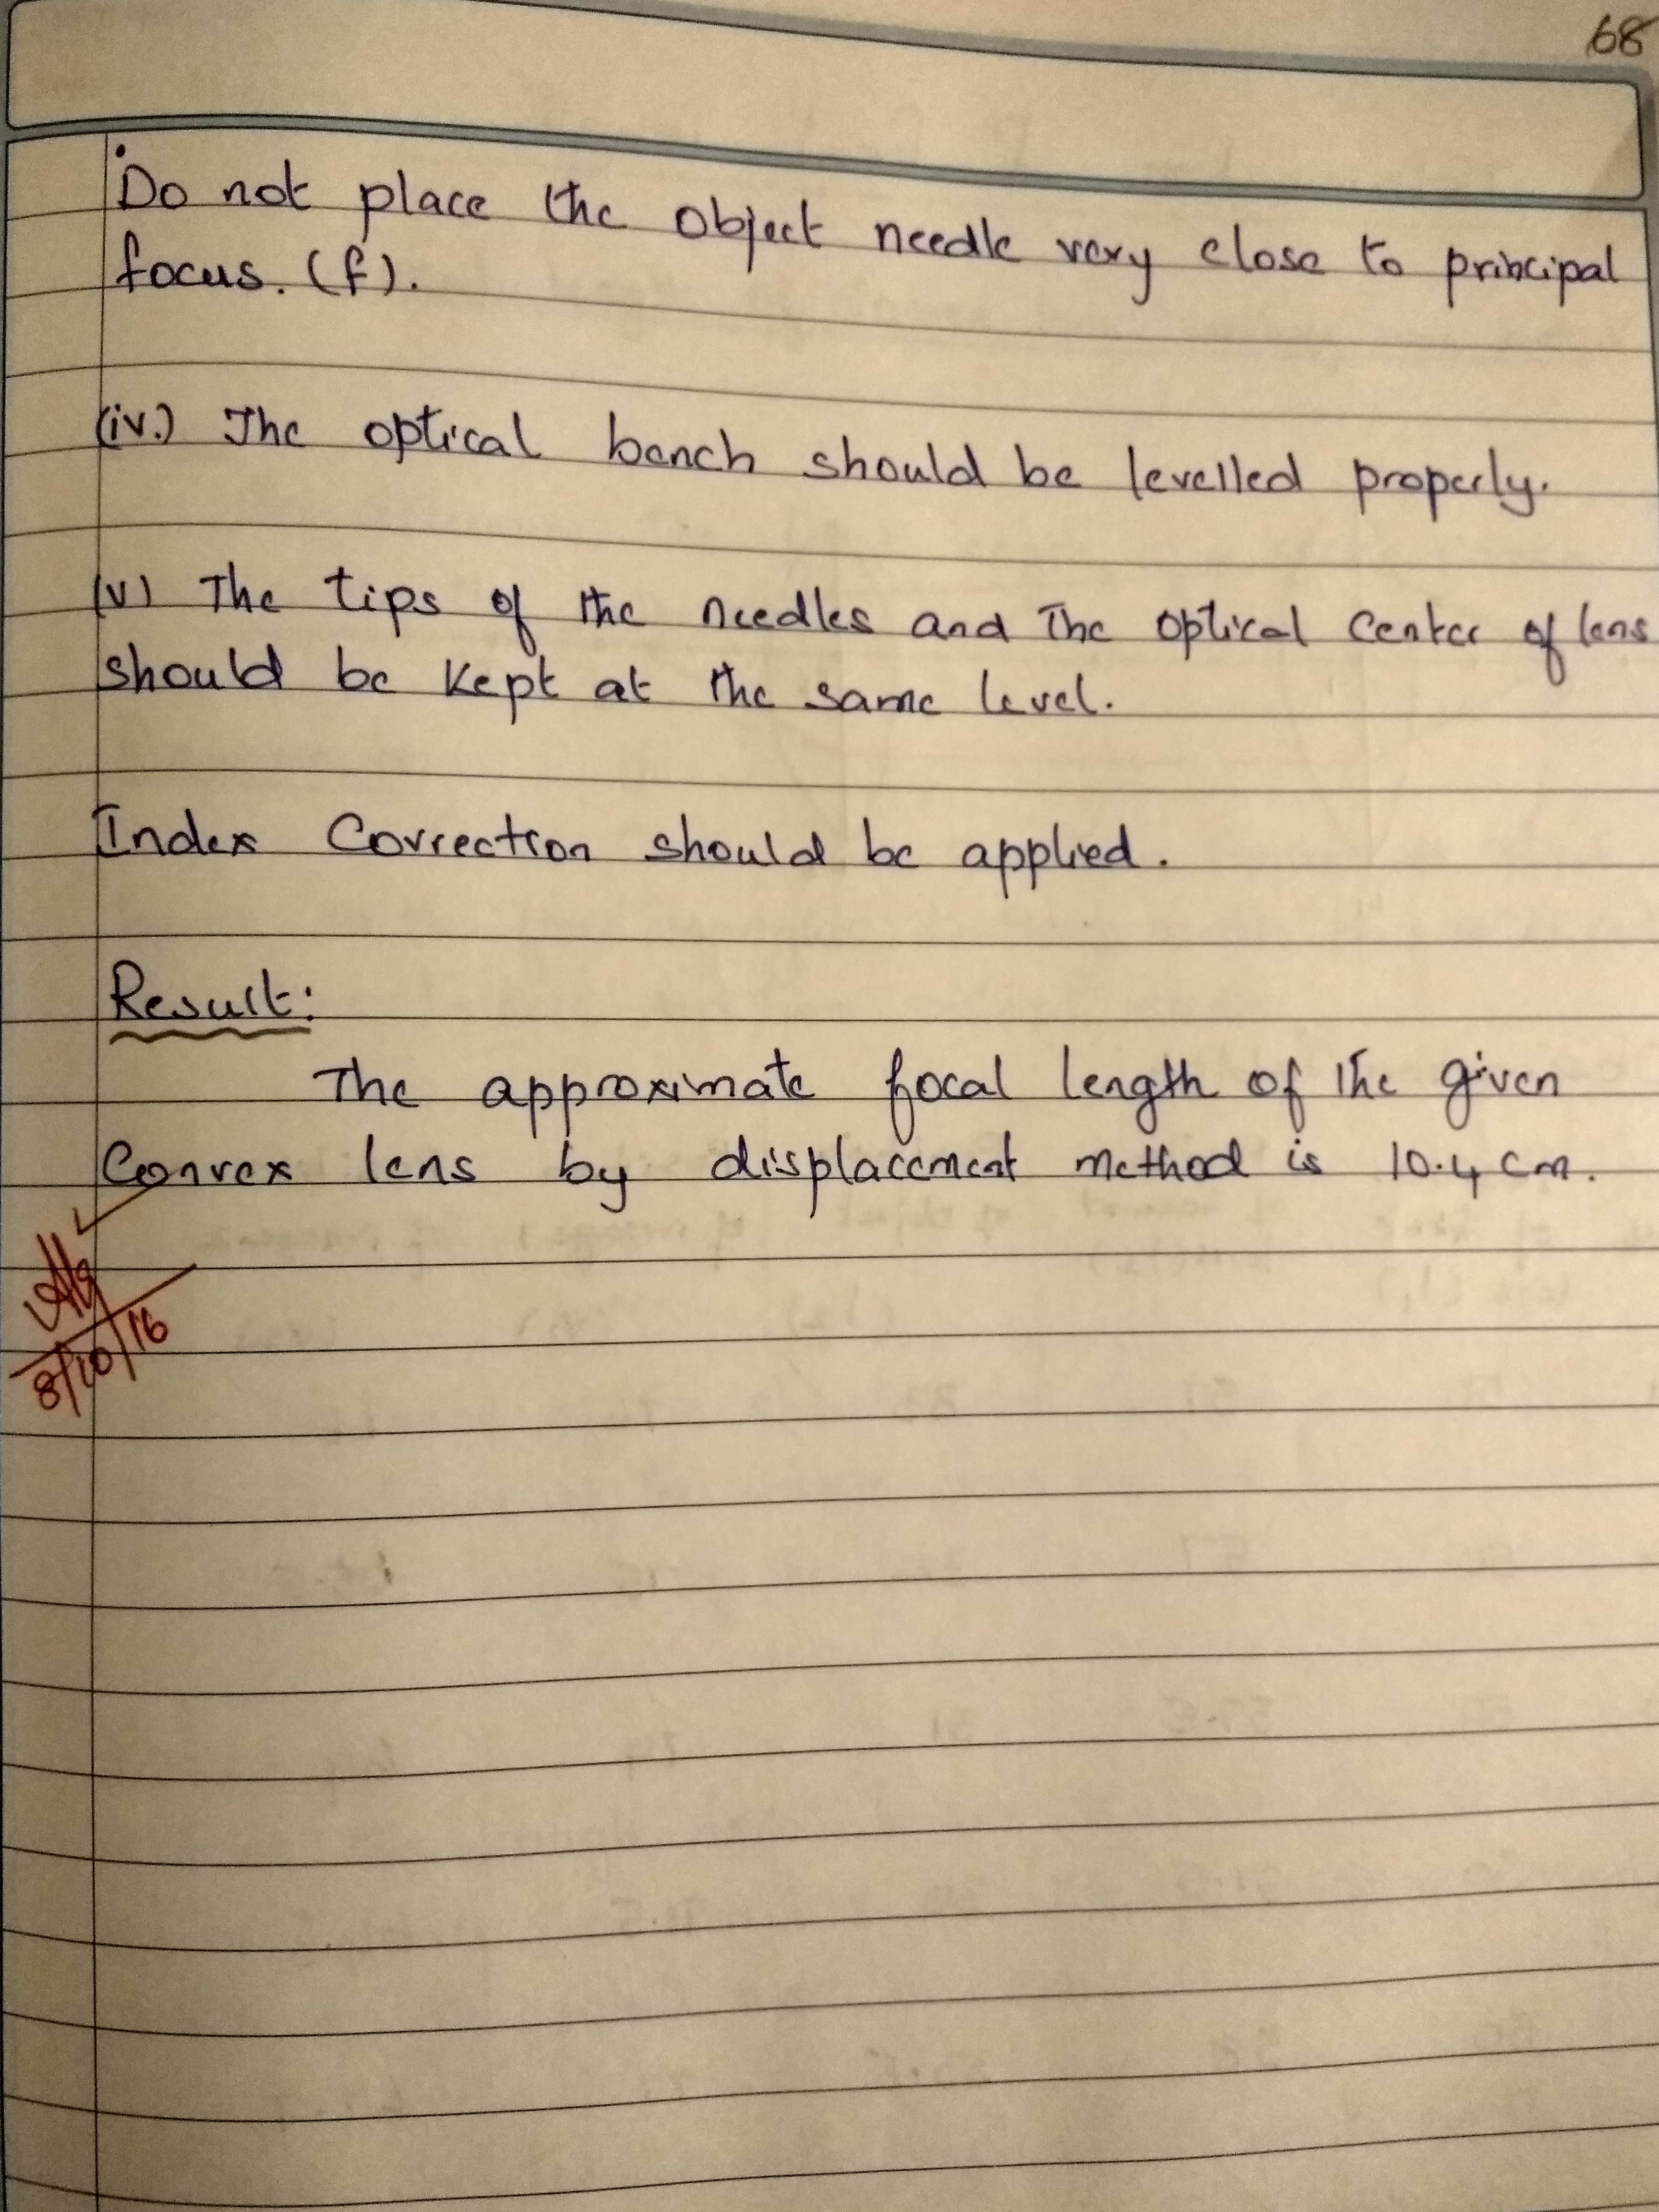 68
Do not place the object needle very close to principal
focus. (f).
(iv.) The optical bench should be levelled properly.
(v) The tips of the needles and The optical center of lens
should be kept at the same level.
Index Correction should be applied.
Result:
The approximate focal length of the given
Convex lens by displacement method is 10.4 cm.
8/10/16